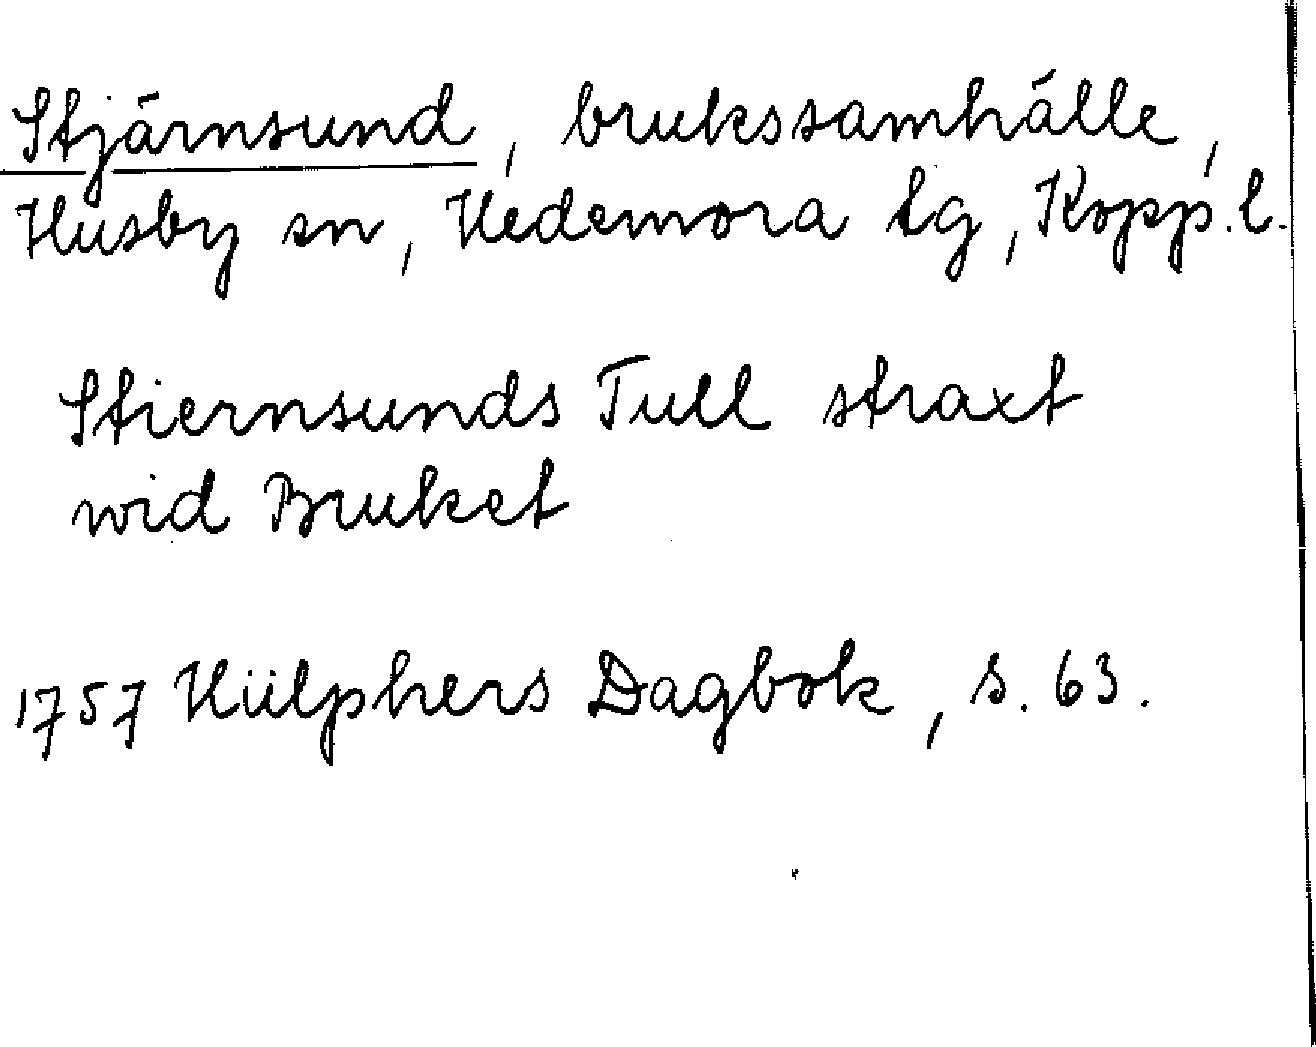 Stjärnsund, brukssamhälle,
Husby sn, Hedemora tg, Kopp. l.
Stiernsunds Tull straxt
wid Bruket
1757 Hülphers Dagbok, s. 63.